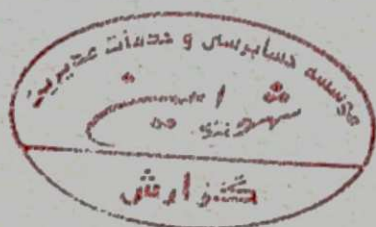 موسسه حسابرسی و خدمات مدیریت
گزارش